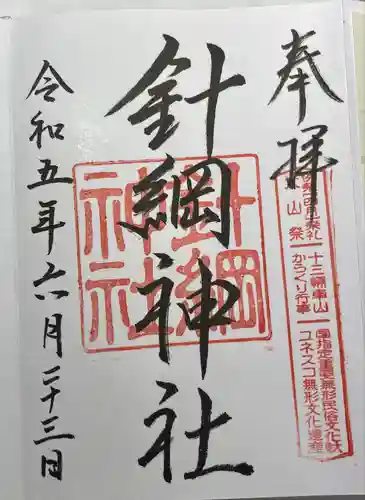 奉拝
山祭
十三輌車山
からくり行事
国指定重要無形民俗文化財
ユネスコ無形文化遺産
針綱神社
針綱
神社
令和五年六月二十三日